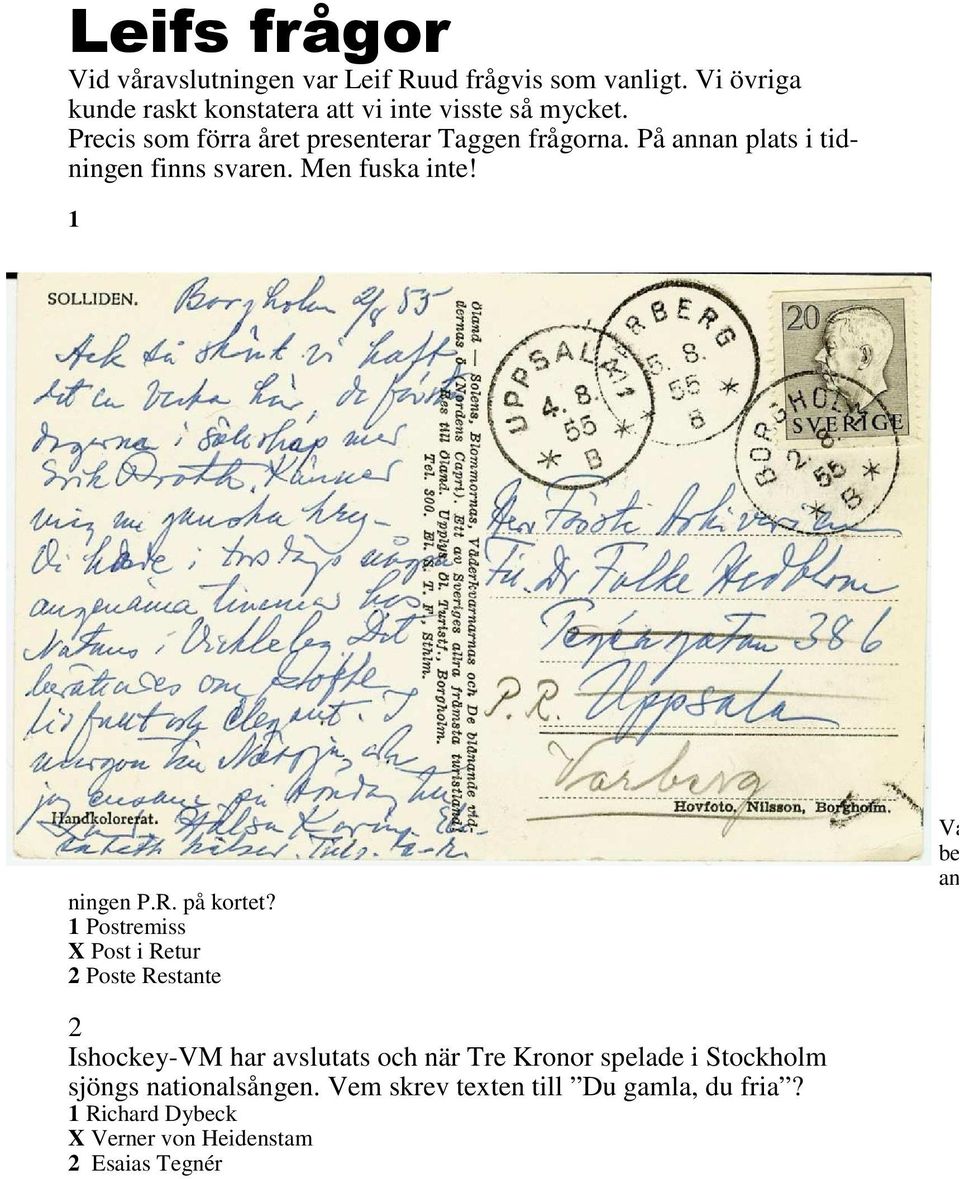 Leifs frågor
Vid våravslutningen var Leif Ruud frågvis som vanligt. Vi övriga
kunde raskt konstatera att vi inte visste så mycket.
Precis som förra året presenterar Taggen frågorna. På annan plats i tid-
ningen finns svaren. Men fuska inte!
1
SOLLIDEN.
Borgholm 2/8 55
Ack så skönt vi haft
det en vecka här, de första
dagarna i sällskap med
Erik Känner
mig nu ganska
Vi hade i torsdags några
angenäma timmar hos
i Vickleby. Det
berättades om
elegant. I
morgon
jag ensam på söndag
Hälsa Karin.
hälser.
Handkolorerat.
Öland — Solens, Blommornas, Väderkvarnarnas och De blånande vid-
dernas ö (Nordens Capri). Ett av Sveriges allra främsta turistland
res till Öland. Upplys. Öl. Turistf., Borgholm.
Tel. 300. El. S. T. F., Sthlm.
UPPSALA 1
4. 8.
55
* B *
VARBERG
5. 8.
55
* B *
BORGHOLM
2. 8.
55
* B *
20
SVERIGE
Herr Förste Arkivarien
Fil. Dr Folke Hedblom
Tegnérgatan 38 b
P.R. Uppsala
Varberg
Hovfoto. Nilsson, Borgholm.
Va
be
an
ningen P.R. på kortet?
1 Postremiss
X Post i Retur
2 Poste Restante
2
Ishockey-VM har avslutats och när Tre Kronor spelade i Stockholm
sjöngs nationalsången. Vem skrev texten till ”Du gamla, du fria”?
1 Richard Dybeck
X Verner von Heidenstam
2 Esaias Tegnér